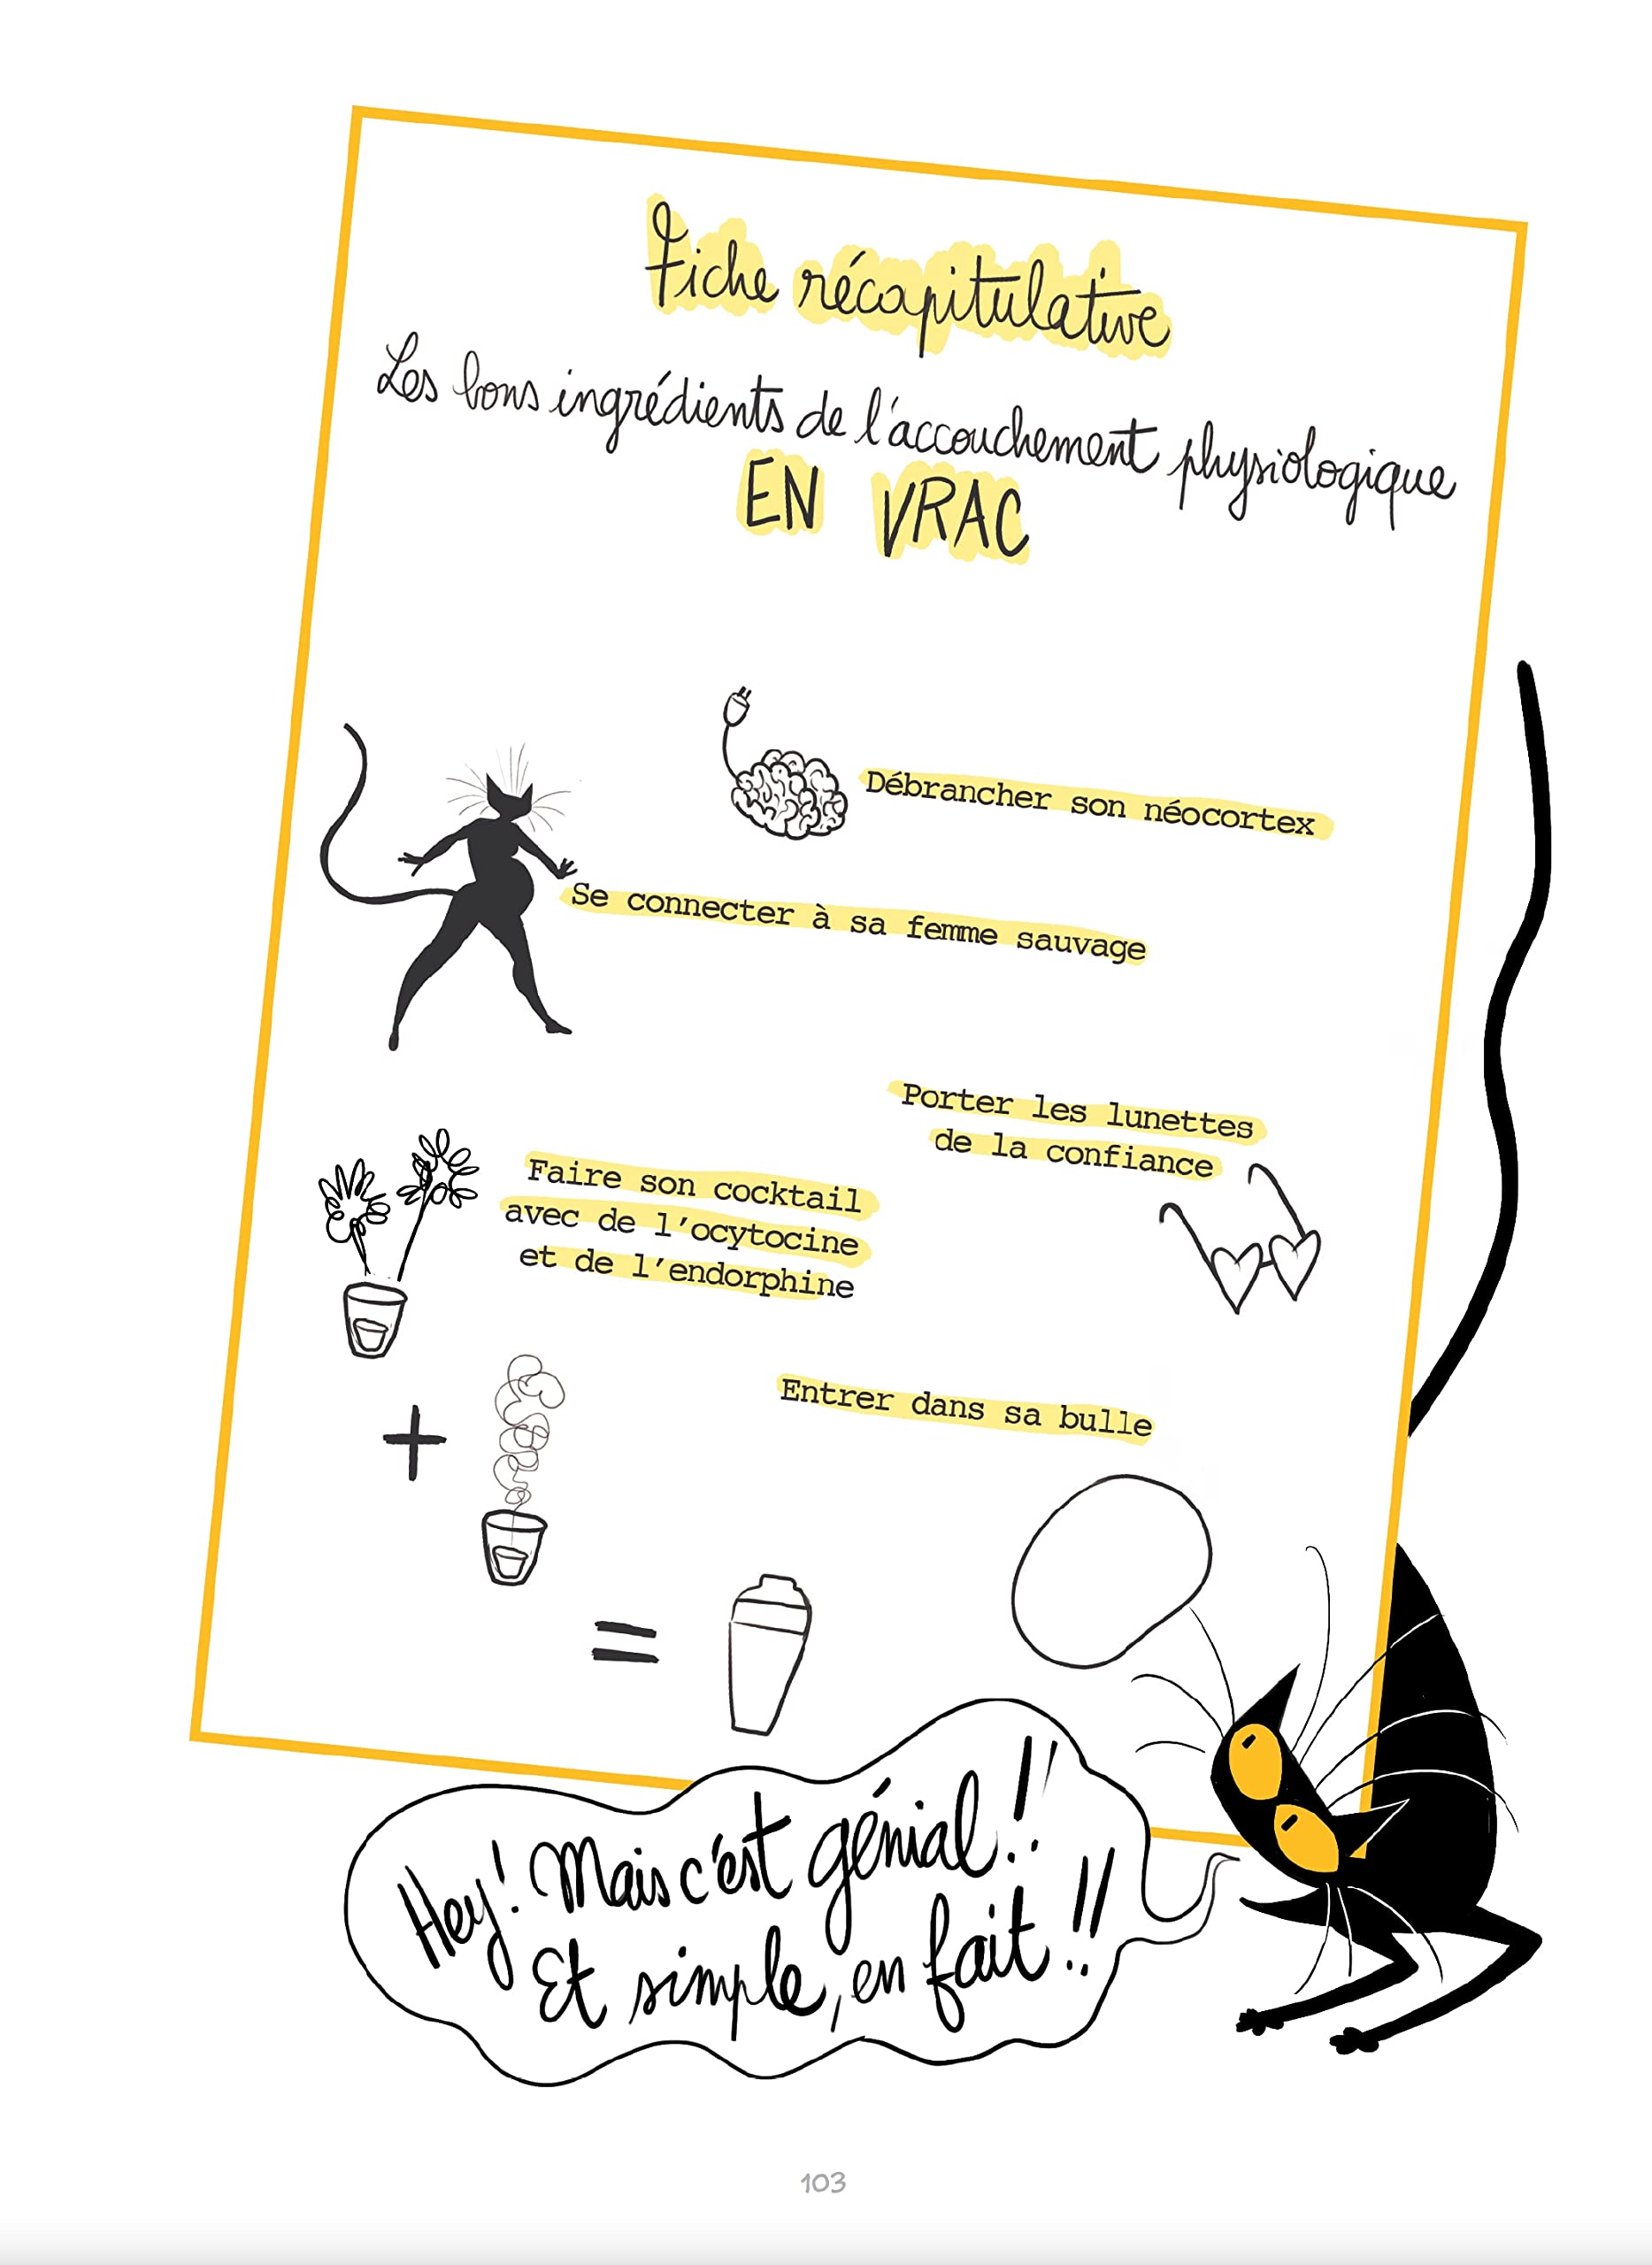 Fiche récapitulative
Les bons ingrédients de l'accouchement physiologique
EN VRAC
Débrancher son néocortex
Se connecter à sa femme sauvage
Porter les lunettes
de la confiance
Faire son cocktail
avec de l'ocytocine
et de l'endorphine
Entrer dans sa bulle
Hey! Mais c'est génial!!
Et simple, en fait!!
103